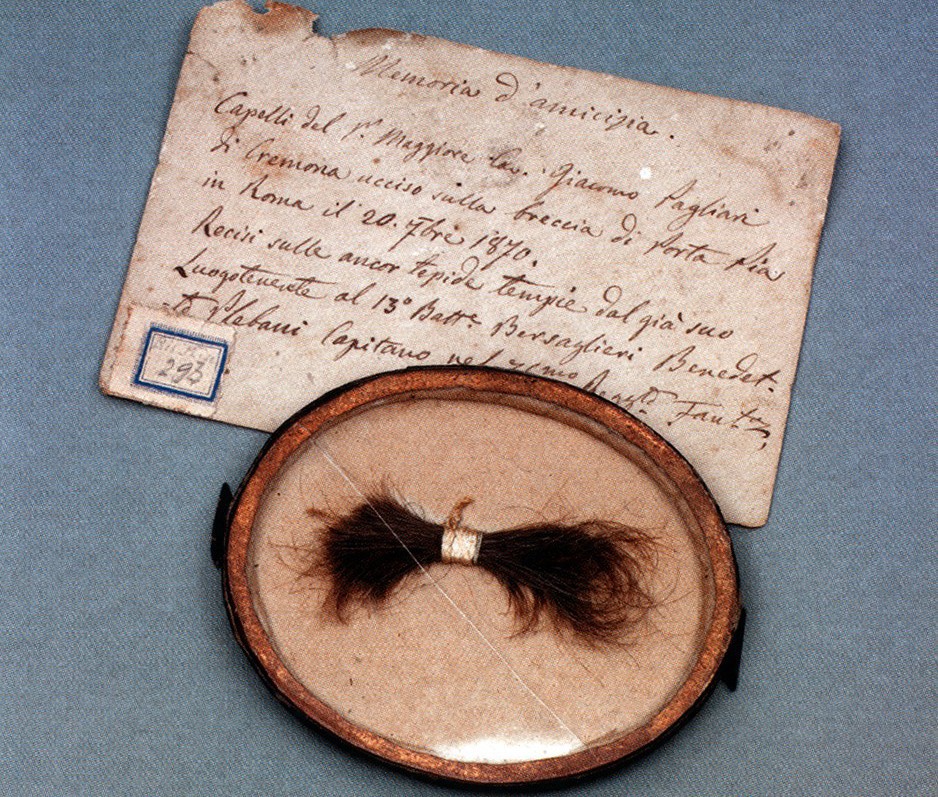 Memoria d'amicizia.
Capelli del S.r Maggiore Cav. Giacomo Pagliari
di Cremona ucciso sulla breccia di Porta Pia
in Roma il 20. 7bre 1870.
Recisi sulle ancor tepide tempie dal già suo
Luogotenente al 13° Batt.e Bersaglieri Benedet-
-to Plebani Capitano nel Fant.a
293